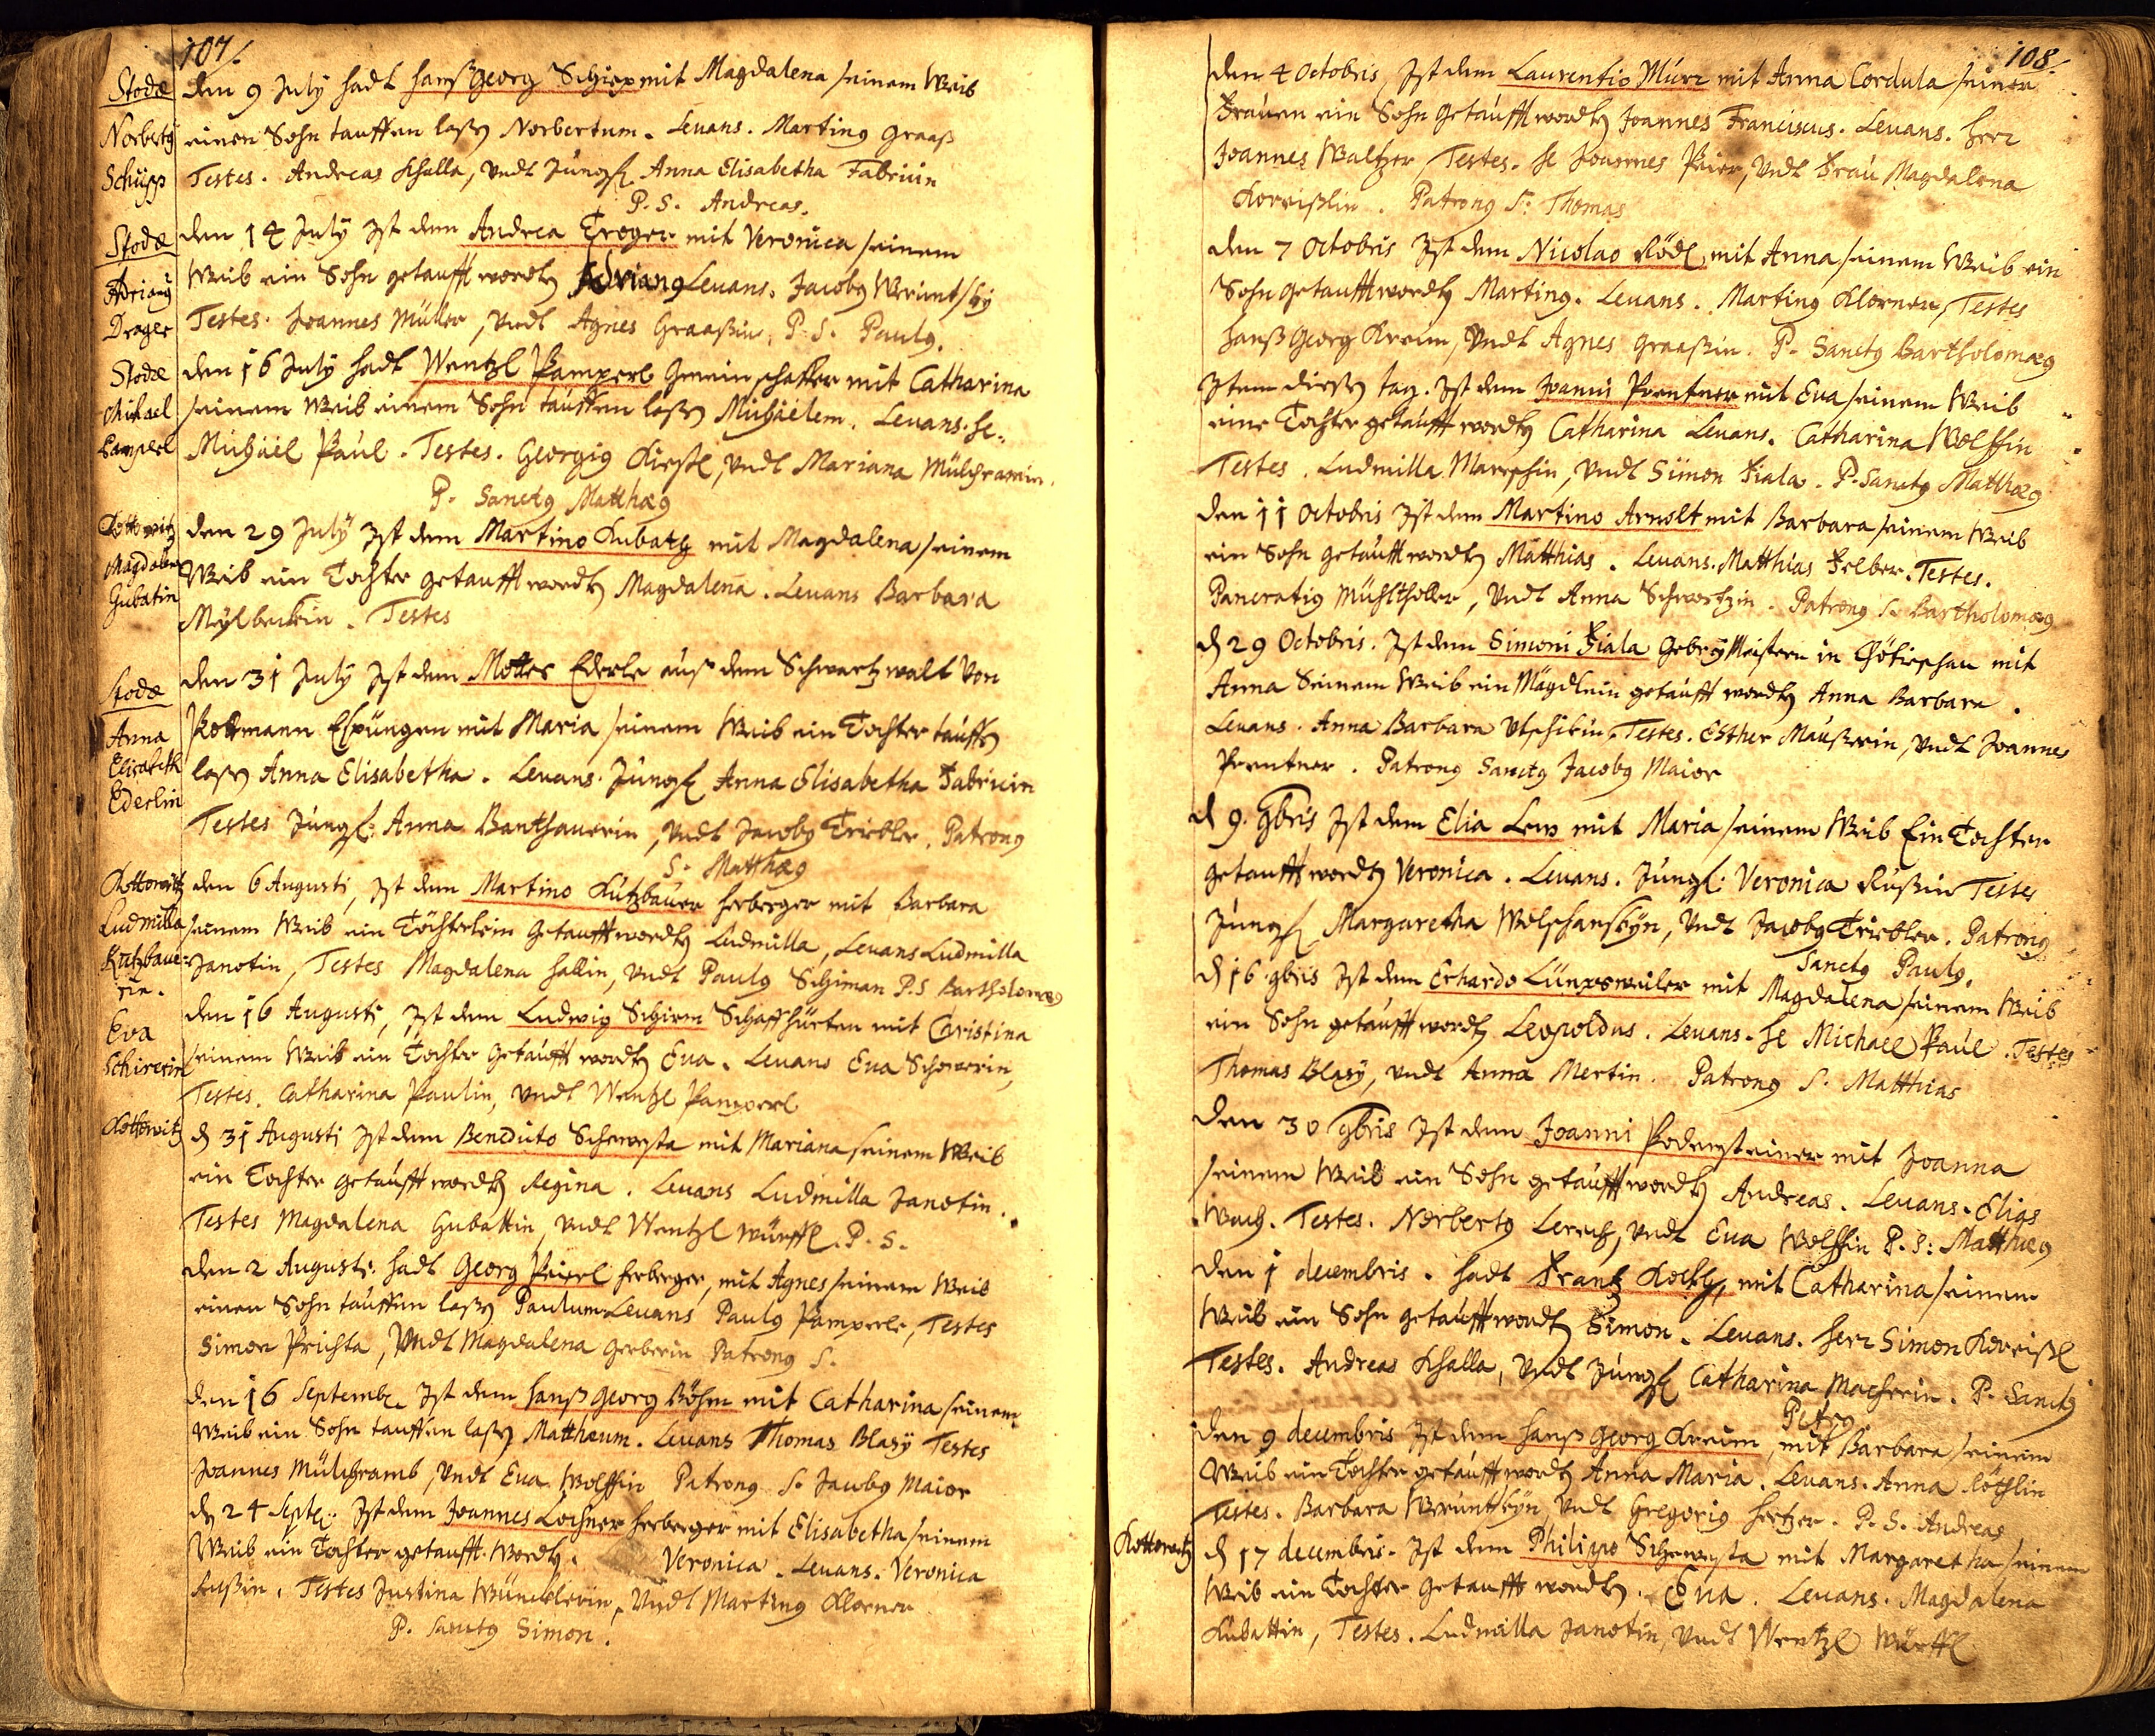 107/.
Stodæ
Norberty
Schüpp
den 9 July hadt Hanß Georg Schiep mit Magdalena seinem Weib
einen Sohn tauffen laßen Norbertum. Leuans. Martinus Graaß
Testes. Andreas Khalla, undt Jungf. Anna Elisabetha Fabriin
P. S. Andreas.
Stodæ
Adrianus
Drager
den 14 July Ist dem Andrea Troger mit Veronica seinem
Weib ein Sohn getaufft worden Adrianus Leuans. Jacobus
Testes. Joannes Müller, undt Agnes Graaßin. P. S. Paulus.
Stodæ
Michael
Pamperl
den 16 July hadt Wentzl Pamperl Gemein schaffer mit Catharina
seinem Weib einem Sohn tauffen laßen Michäelem. Leuans. He.
Michäel Paul. Testes. Georgius Kießl, undt Mariana Mülchramin.
P. Sanctus Matthæus
Kottowitz
Magdalen
Gubatin
den 29 July Ist dem Martino Kubaty mit Magdalena seinem
Weib ein Tochter getaufft worden Magdalena. Leuans Barbara
Testes
Stodæ
Anna
Elisabeth
Ederlin
den 31 July Ist dem Mottes Ederle auß dem Schwartzwalt von
mit Maria seinem Weib ein Tochter tauffen
laßen Anna Elisabetha. Leuans. Jungf Anna Elisabetha Fabriin
Testes Jungf. Anna Banthauerin, undt Jacobus Triebler. Patronus
S. Matthæus
Kottowitz
Ludmilla
Kutzbaue=
rin.
den 6 Augusti, Ist dem Martino Kutzbauer herberger mit Barbara
seinem Weib ein Töchterlein getaufft worden Ludmilla, Leuans Ludmilla
Janotin, Testes Magdalena Hallin, undt Paulus Schiman P.S Bartholomæus
Eva
Schirerin
den 16 Augusti, Ist dem Ludwig Schirm Schaffhürten mit Christina
seinem Weib ein Tochter getaufft worden Eua. Leuans Eua
Testes. Catharina Paulin, undt Wentzl Pamperl
Kottowitz
den 31 Augusti Ist dem Benedicto Schewesta mit Mariana seinem Weib
ein Tochter getaufft worden Regina. Leuans Ludmilla Janotin.
Testes Magdalena Gubattin, undt Wentzl Würffl. P. S.
den 2 Augusti. hadt Georg Peierl herberger, mit Agnes seinem Weib
einen Sohn tauffen laßen Paulum. Leuans Paulus Pamperl, Testes
Simon Prichta, undt Magdalena Gerberin Patronus S.
den 16 Septemb. Ist dem Hanß Georg Böhm mit Catharina seinem
Weib ein Sohn tauffen laßen Matthæum. Leuans Thomas Blasÿ Testes
Joannes Mülchramb, undt Eua Wolffin Patronus S. Jacobus Maior
den 24 Septe. Ist dem Joannes Lochner herberger mit Elisabetha seinem
Weib ein Tochter getaufft worden. Veronica. Leuans. Veronica
Rußin. Testes Justina Wüncklerin, undt Martinus Klorner
P. Sanctus Simon.
108.
den 4 Octobris, Ist dem Laurentio Mürz mit Anna Cordula seiner
Frauen ein Sohn getaufft worden Joannes Franciscus. Leuans. Herr
Joannes Waltzer Testes. He Joannes Peier, undt Frau Magdalena
Koreißlin. Patronus S. Thomas
den 7 Octobris Ist dem Nicolao Rödl mit Anna seinem Weib ein
Sohn getaufft worden Martinus. Leuans. Martinus Klorner, Testes
Hanß Georg Kreim, undt Agnes Graaßin. P. Sanctus Bartholomæus
Item dießen tag. Ist dem Joanni Prentner mit Eua seinem Weib
eine Tochter getaufft worden Catharina Leuans. Catharina Wolffin
Testes. Ludmilla, undt Simon Fiala. P. Sanctus Matthæus
den 11 Octobris Ist dem Martino Arnolt mit Barbara seinem Weib
ein Sohn getaufft worden Matthias. Leuans. Matthias Felber. Testes.
Pancratius Mühlthaller, undt Anna Schwartzin. Patronus S. Bartholomæus
den 29 Octobris. Ist dem Simoni Fiala mit
Anna Seinem Weib ein Mägdlein getaufft worden Anna Barbara.
Leuans. Anna Barbara Testes. Esther Maußerin, undt Joannes
Prentner. Patronus Sanctus Jacobus Maior
den 9. 9bris Ist dem Elia Lew mit Maria seinem Weib Ein Tochter
getaufft worden Veronica. Leuans. Jungf. Veronica Rußin Testes
Jungf Margaretha Wolschanskÿn, undt Jacobus Triebler. Patronus
Sanctus Paulus.
den 16. 9bris Ist dem Erhardo Lünxweiler mit Magdalena seinem Weib
ein Sohn getaufft worden Leopoldus. Leuans. He Michael Paul. Testes
Thomas Blasÿ, undt Anna Mertin. Patronus S. Matthias
den 30 9bris Ist dem Joanni Podensteiner mit Joanna
seinem Weib ein Sohn getaufft worden Andreas. Leuans. Elias
Wach. Testes. Norbertus Lerch, undt Eua Wolffin P. S: Matthæus
den 1 decembris. hadt Frantz Kocky, mit Catharina seinem
Weib ein Sohn getaufft worden Simon. Leuans. Herr Simon Koreißl
Testes. Andreas Khalla, undt Jungf Catharina Macherin. P. Sanctus
Petrus.
den 9 decembris Ist dem Hanß Georg Kreim, mit Barbara seinem
Weib ein Tochter getaufft worden Anna Maria. Leuans. Anna Röthlin
Testes. Barbara undt Gregorius Hertzer. P. S. Andreas
Kottowitz
den 17 decembris. Ist dem Philippo Schewesta mit Margaretha seinem
Weib ein Tochter getaufft worden. Eua. Leuans. Magdalena
Kubattin, Testes. Ludmilla Janotin, undt Wentzl Würffl